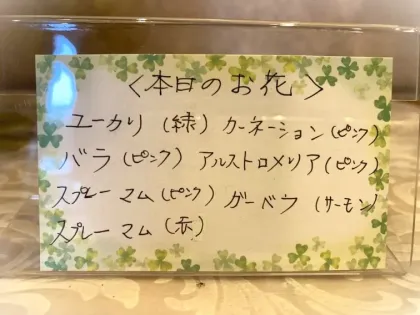 <本日のお花>
ユーカリ(緑) カーネーション(ピンク)
バラ(ピンク) アルストロメリア(ピンク)
スプレーマム(ピンク) ガーベラ(サーモン)
スプレーマム(赤)